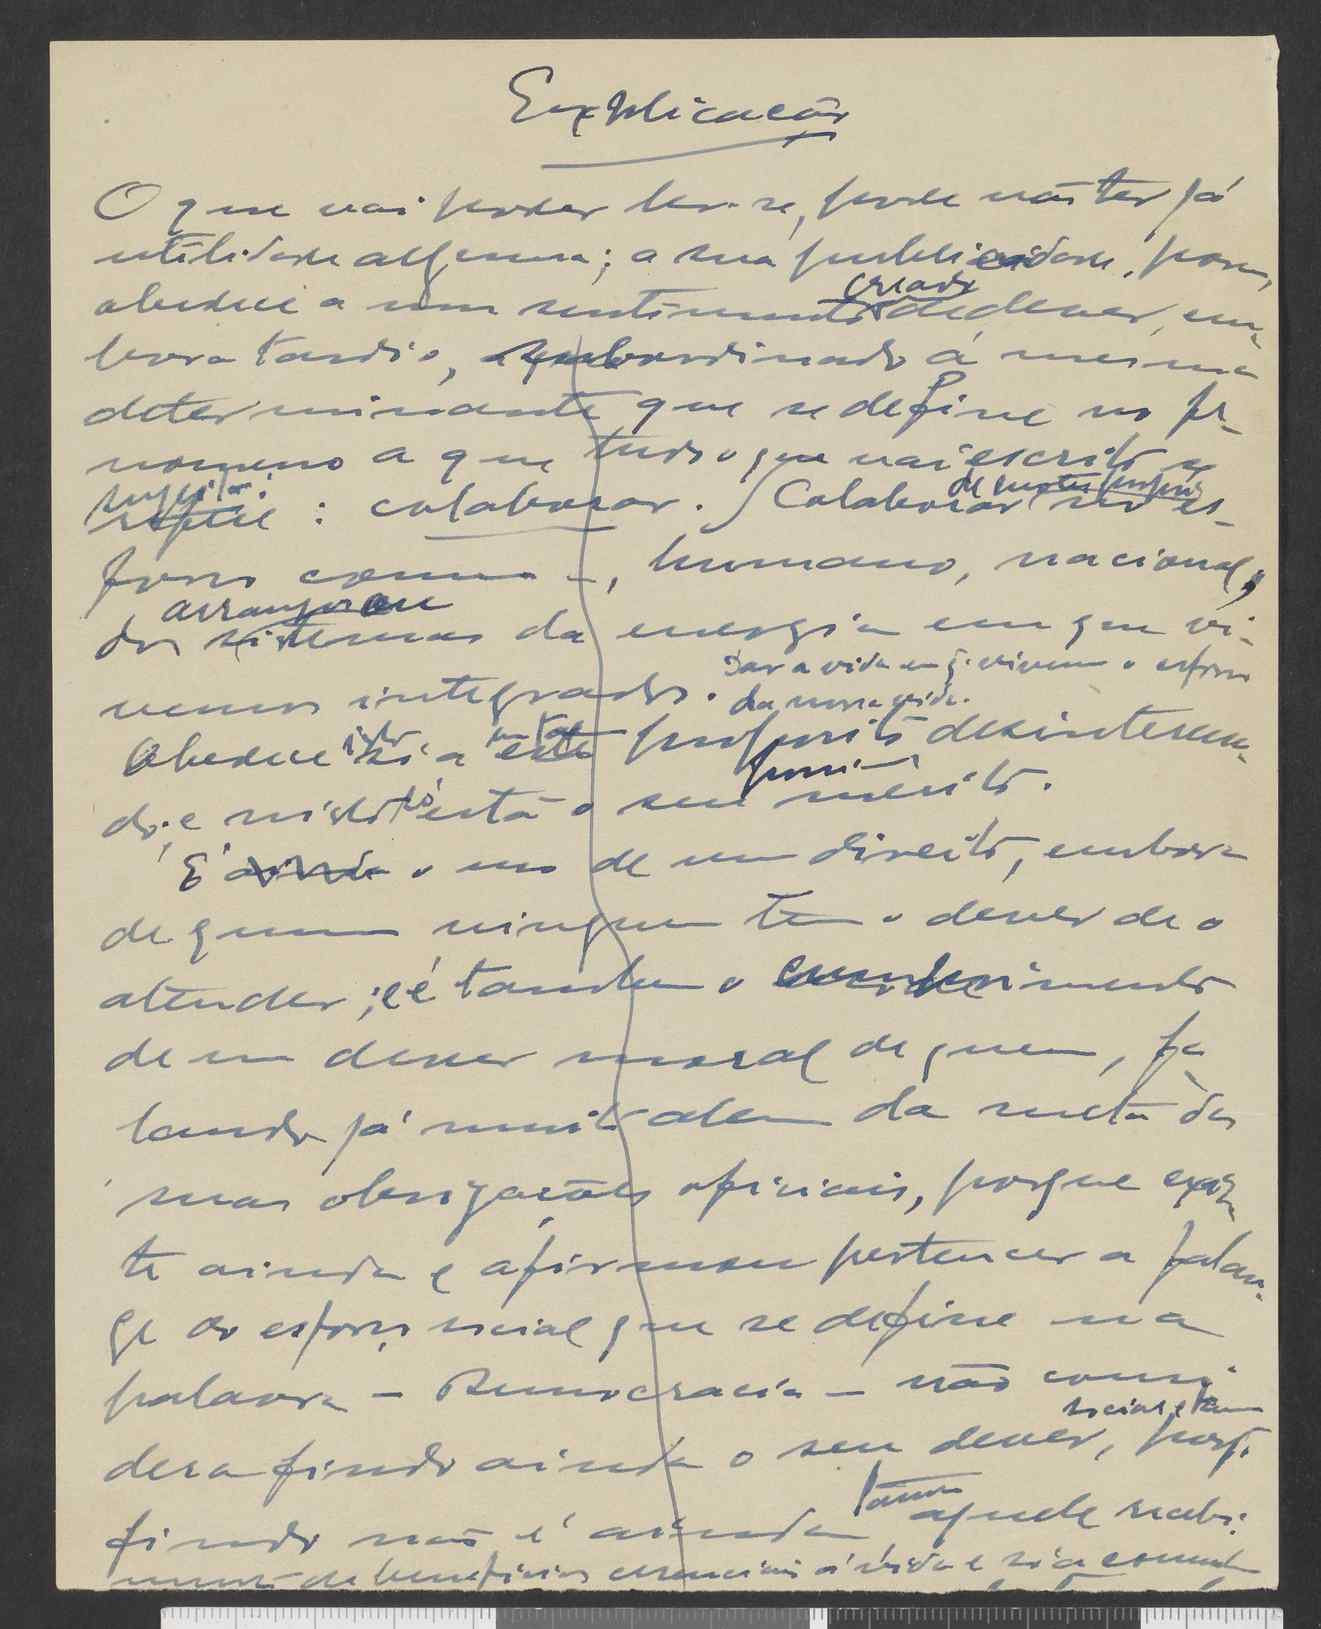 Explicação
O que vai poder ler-se, pode não ter já
utilidade alguma; a sua publicidade, porem,
creado
obedece a um sentimento de dever, em-
bora tardio, subordinado á mesma
determinante que se define no fe-
nomeno a que tudo o que vai escrito se
sujeitar:
: colaborar. Colaborar no es-
forço comum, humano, nacional,
dos sistemas da energia em que vi-
vemos integrados.
dar a vida em q. vivemos o esforço
da nossa vida.
Obedece a este proposito desinteressa-
do; e nisto só está o seu mérito.
É ainda o uso de um direito, embora
de quem ninguem tem o dever de o
atender; e é tambem o cumprimento
de um dever moral de quem, fa-
lando já muito alem da meta das
suas obrigações oficiais, porque exis-
te ainda e afirmou pertencer a falan-
ge do esforço social que se define na
palavra - Democracia - não consi-
social, e tem
dera findo ainda o seu dever, porq.
findo não é ainda aquele recebi-
mento de beneficios essenciais á vida e